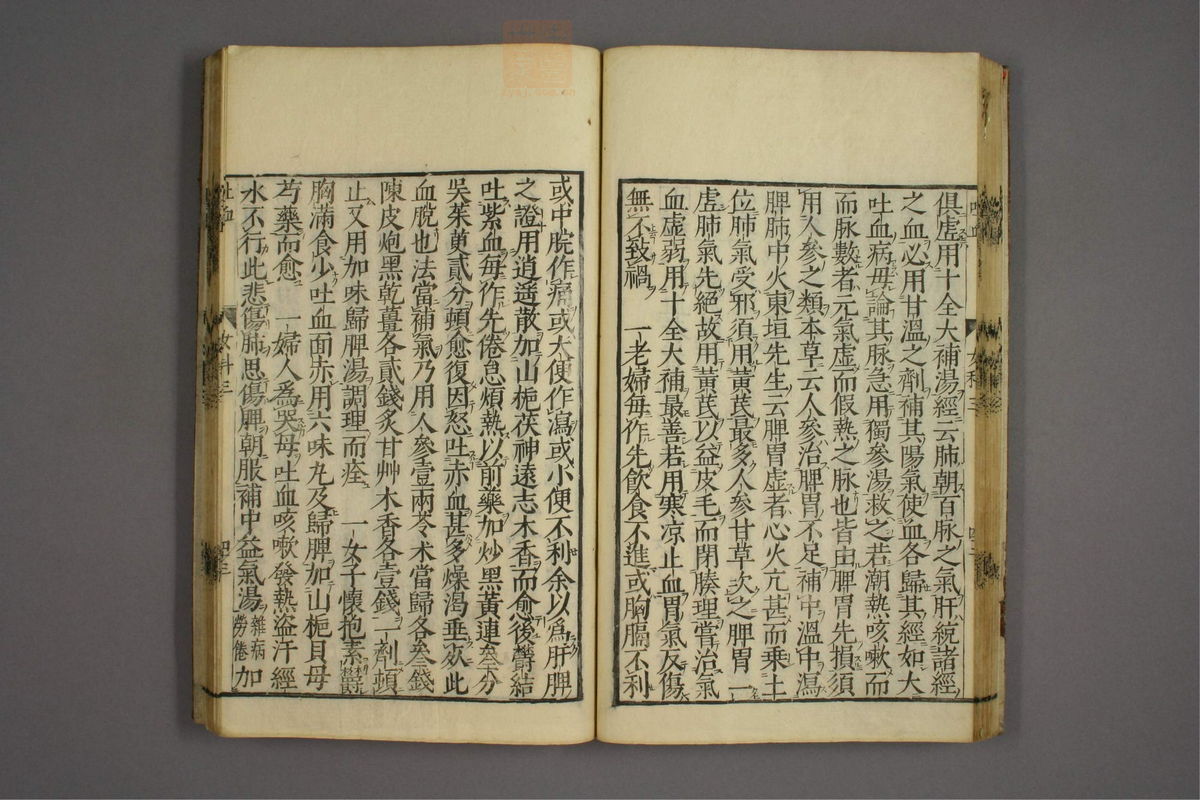 俱虛用十全大補湯經云肺朝百脉之氣肝統諸經
之血必用甘溫之劑補其陽氣使血各歸其經如大
吐血病毋論其脉急用獨參湯救之若潮熱咳嗽而
而脉數者元氣虛而假熱之脉也皆由脾胃先損須
用人參之類本草云人參治脾胃不足補中溫中瀉
脾肺中火東垣先生云脾胃虛者心火亢甚而乗土
位肺氣受邪須用黃芪最多人參甘草次之脾胃一
虛肺氣先絕故用黃芪以益皮毛而閉腠理嘗治氣
血虛弱用十全大補最善若用寒凉止血胃氣反傷
無不致禍 一老婦每作先飲食不進或胸膈不利
或中脘作痛或大便作瀉或小便不利余以爲肝脾
之證用逍遥散加山梔茯神遠志木香而愈後欝結
吐紫血每作先倦怠煩熱以前藥加炒黑黃連叁分
吳茱萸貳分頓愈復因怒吐赤血甚多燥渴垂㱡此
血脫也法當補氣乃用人參壹兩苓朮當歸各叁錢
陳皮炮黑乾薑各貳錢炙甘艸木香各壹錢一劑頓
止又用加味歸脾湯調理而痊 一女子懷抱素欝
胸滿食少吐血面赤用六味丸及歸脾加山梔貝母
芍藥而愈 一婦人爲哭母吐血咳嗽發熱盜汗經
水不行此悲傷肺思傷脾朝服補中益氣湯雜病勞倦加
吐血 女科三 四三